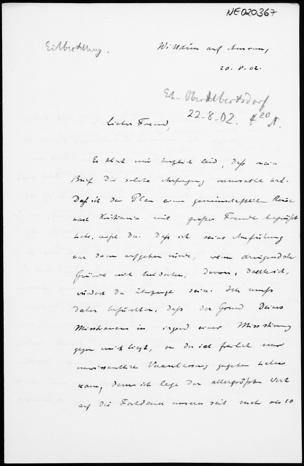 NE020367
Eilbestellung.
Wittdün auf Amrum,
20. 8. 02.
Eh. Oberalbertsdorf
22-8.02.
Lieber Freund,
Es thut mir herzlich leid, daß mein
Brief Dir solche Aufregung verursacht hat.
Daß ich den Plan einer gemeinschaftlichen Reise
nach Kristiania mit großer Freude begrüßt
habe, weißt Du. Daß ich seine Ausführung
nur dann aufgeben würde, wenn dringendste
Gründe mich bestimmen, davon,
würdest Du überzeugt sein. Ich muß
daher befürchten, daß der Grund Deines
Misstrauens in irgend einer Missstimmung
gegen mich liegt, zu der ich freilich nur
unwissentliche Veranlassung gegeben haben
kann, denn ich lege den allergrößten Wert
auf die Fortdauer unserer seit mehr als 10